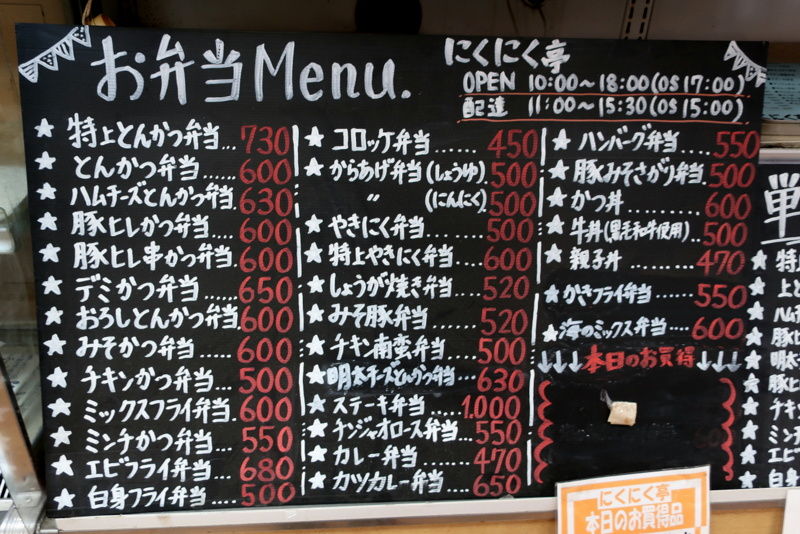 お弁当Menu.
にくにく亭
OPEN 10:00〜18:00(OS 17:00)
配達 11:00〜15:30(OS 15:00)
特上とんかつ弁当...730
とんかつ弁当......600
ハムチーズとんかつ弁当.630
豚ヒレかつ弁当...600
豚ヒレ串かつ弁当.600
デミかつ弁当......650
おろしとんかつ弁当600
みそかつ弁当.....600
チキンかつ弁当...500
ミックスフライ弁当..600
ミンチかつ弁当...550
エビフライ弁当...680
白身フライ弁当...500
コロッケ弁当......450
からあげ弁当(しょうゆ).500
〃 (にんにく).500
やきにく弁当......500
特上やきにく弁当...600
しょうが焼き弁当...520
みそ豚弁当......520
チキン南蛮弁当....500
明太チーズとんかつ弁当...630
ステーキ弁当....1.000
チンジャオロース弁当...550
カレー弁当......470
カツカレー弁当....650
ハンバーグ弁当....550
豚みそさがり弁当.500
かつ丼..........600
牛丼(黒毛和牛使用)..500
親子丼.........470
かきフライ弁当....550
海のミックス弁当....600
↓↓↓本日のお買得↓↓↓
にくにく亭
本日のお買得品
単
特上
上と
ハム
豚ヒ
豚ヒ
明太
豚ヒ
チキ
ミン
エビ
白身